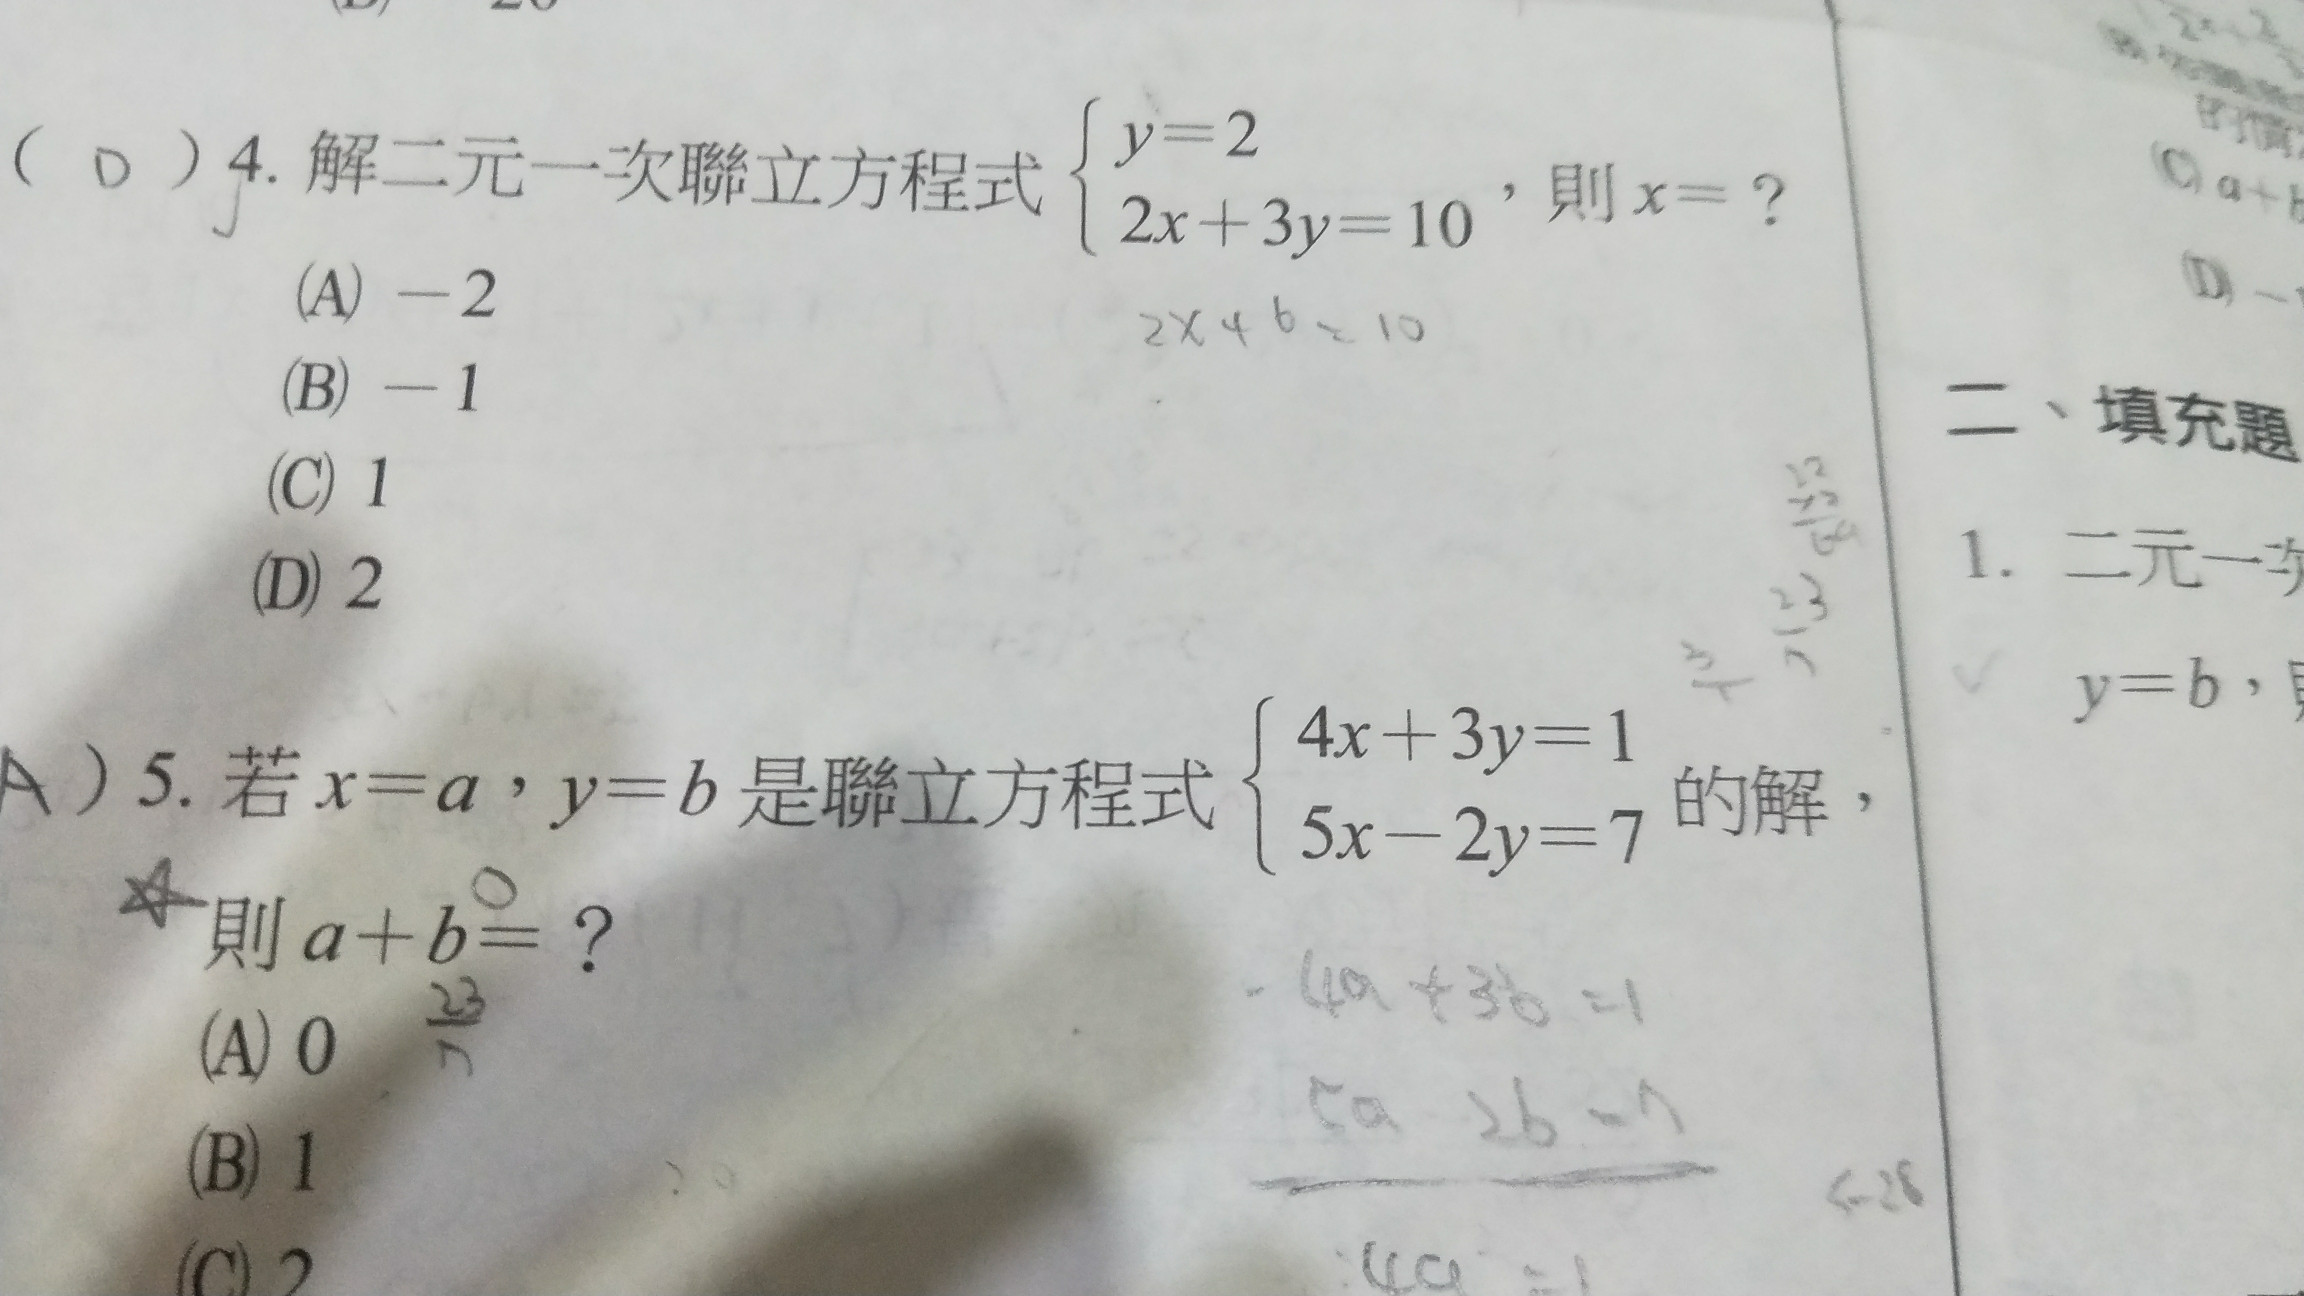 ( D ) 4. 解二元一次聯立方程式 { y=2
2x+3y=10 ，則 x= ?
2x+6=10
(A) -2
(B) -1
(C) 1
(D) 2
A ) 5. 若 x=a，y=b 是聯立方程式 { 4x+3y=1
5x-2y=7 的解，
則 a+b= ?
0
23
7
(A) 0
(B) 1
(C) 2
4a+3b=1
5a 2b=7
4a =1
(C) a+b
(D) -
二、填充題
1. 二元一次
y=b，則